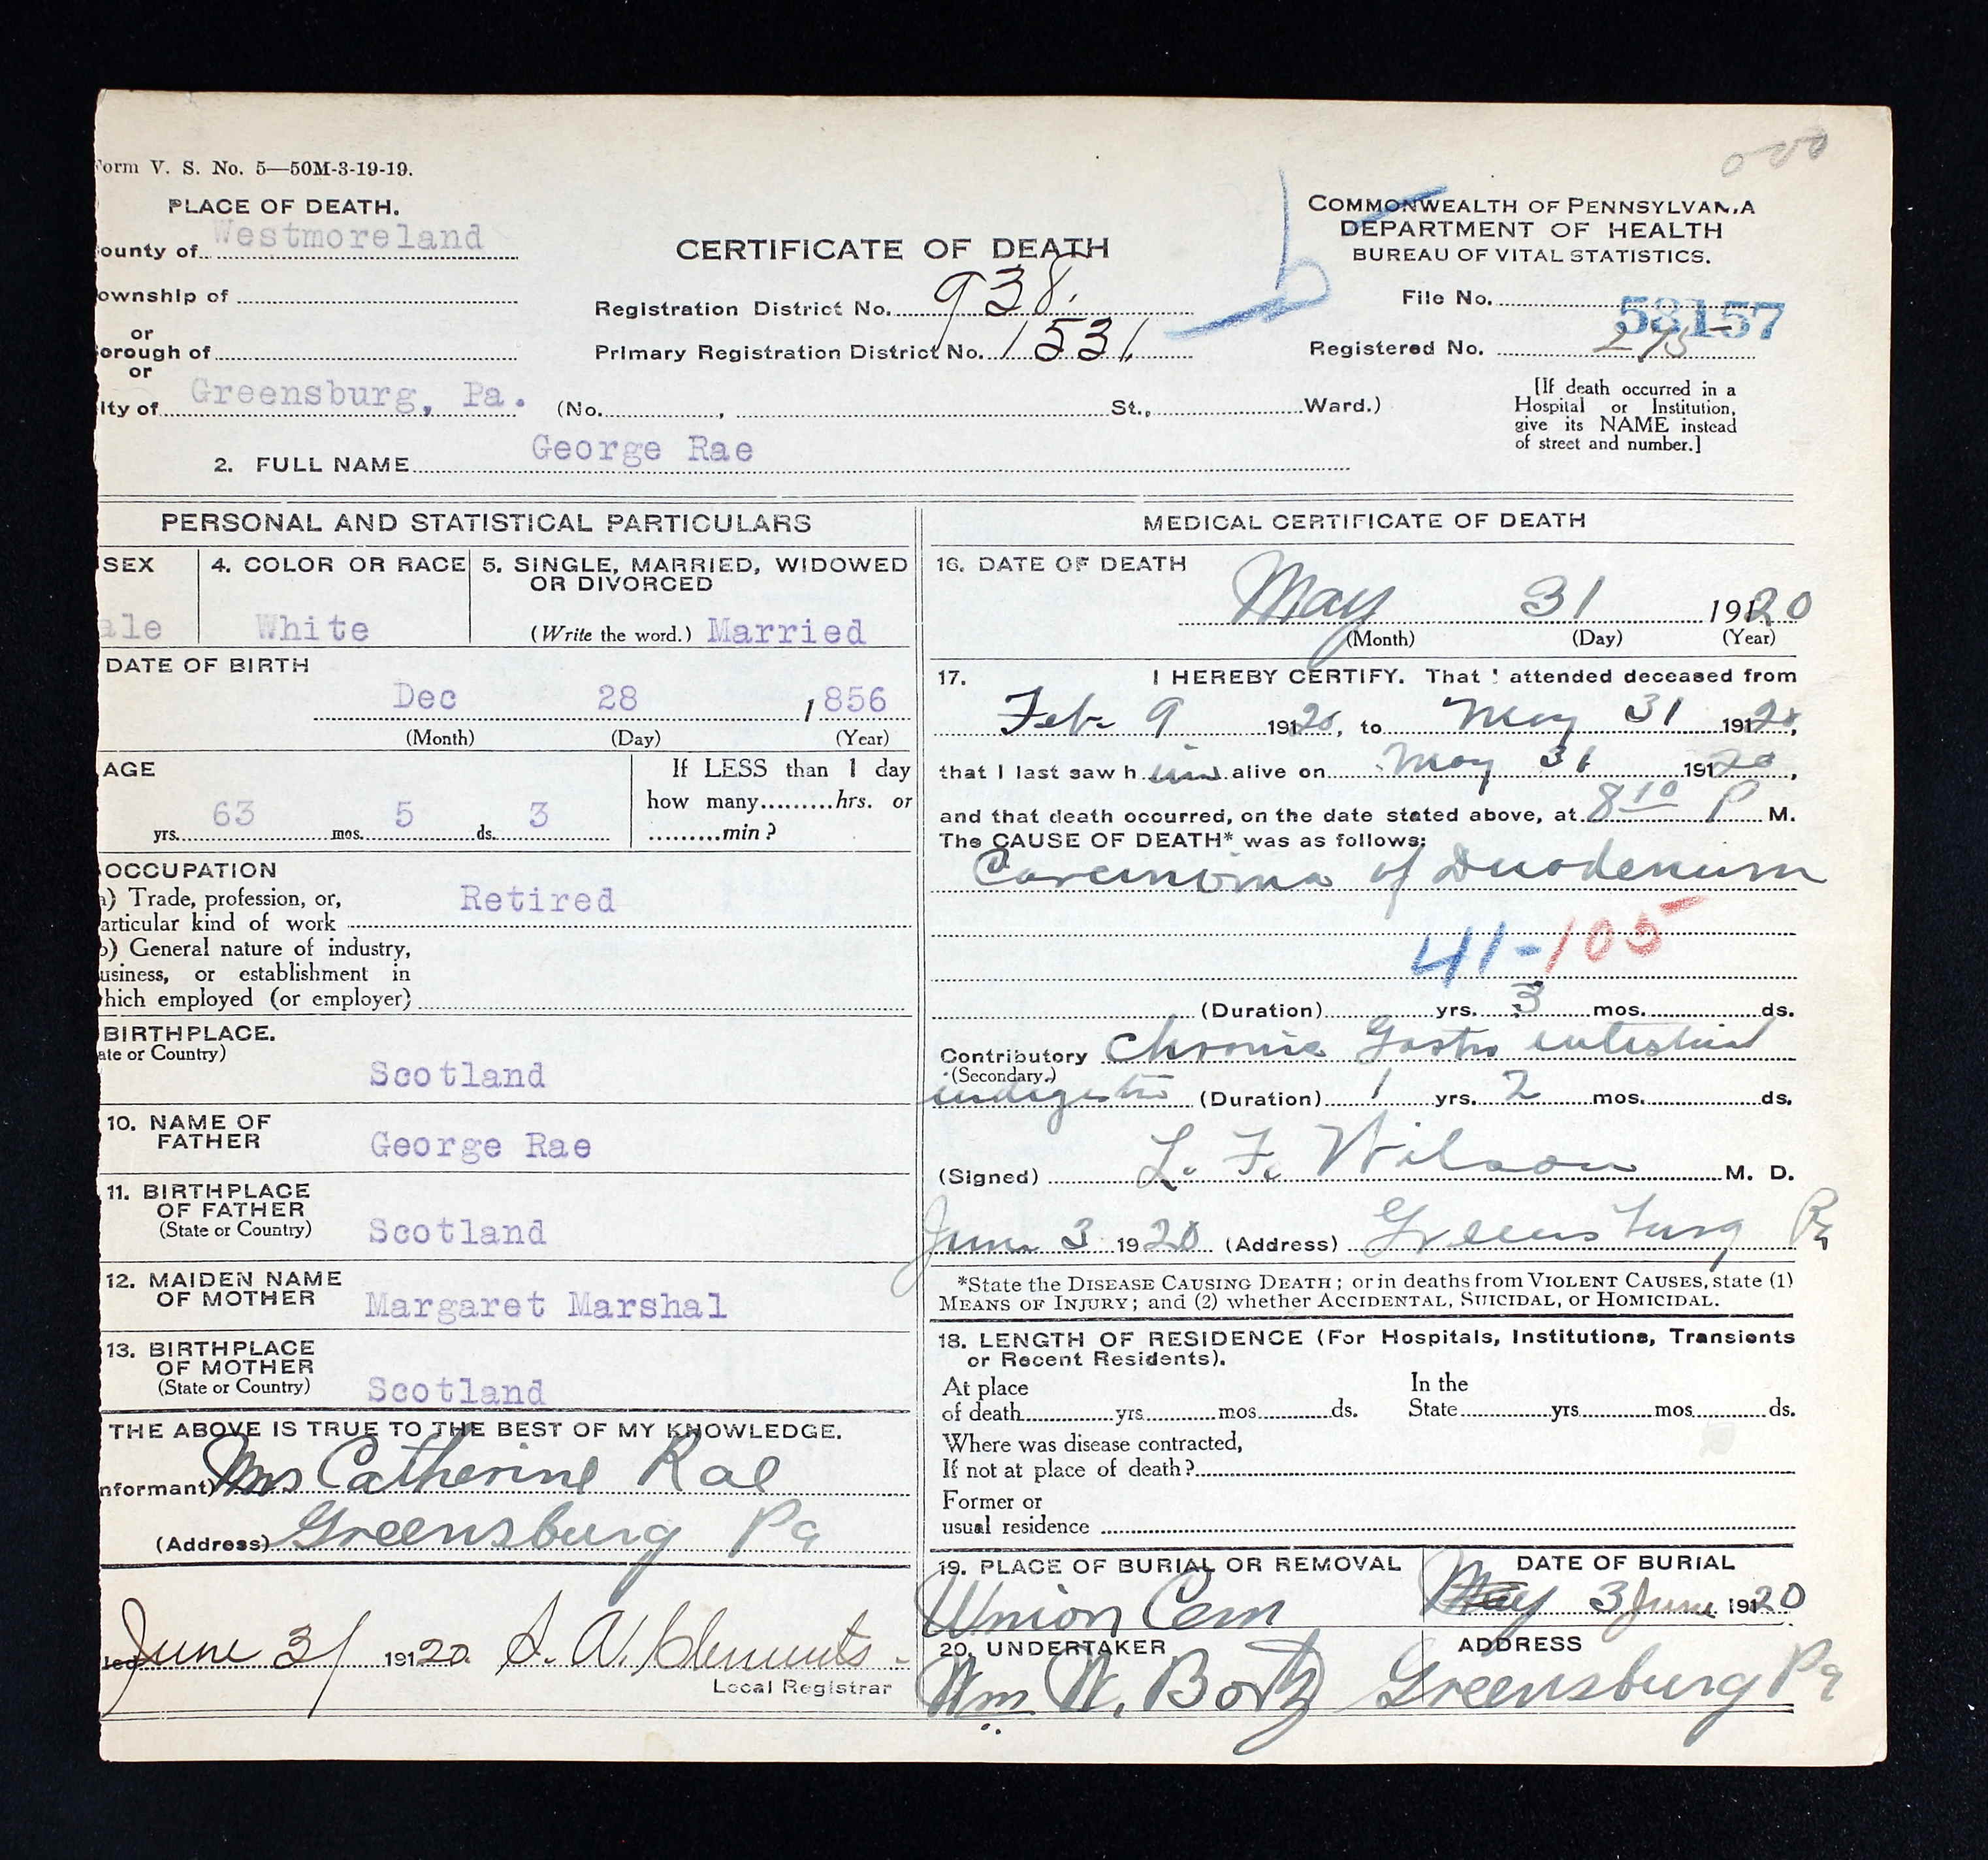 Form V. S. No. 5—50M-3-19-19.
PLACE OF DEATH.
County of Westmoreland
Township of
or
Borough of
or
City of Greensburg, Pa.
CERTIFICATE OF DEATH
Registration District No. 938.
Primary Registration District No. 1531.
(No. , St., Ward.)
COMMONWEALTH OF PENNSYLVANIA
DEPARTMENT OF HEALTH
BUREAU OF VITAL STATISTICS.
File No. 58157
Registered No. 275
[If death occurred in a
Hospital or Institution,
give its NAME instead
of street and number.]
2. FULL NAME George Rae
PERSONAL AND STATISTICAL PARTICULARS
SEX
ale
4. COLOR OR RACE
White
5. SINGLE, MARRIED, WIDOWED
OR DIVORCED
(Write the word.) Married
DATE OF BIRTH
Dec 28 1856
(Month) (Day) (Year)
AGE
63 yrs. 5 mos. 3 ds.
If LESS than 1 day
how many hrs. or
min?
OCCUPATION
a) Trade, profession, or,
articular kind of work Retired
b) General nature of industry,
usiness, or establishment in
hich employed (or employer)
BIRTHPLACE.
ate or Country)
Scotland
10. NAME OF
FATHER George Rae
11. BIRTHPLACE
OF FATHER
(State or Country) Scotland
12. MAIDEN NAME
OF MOTHER Margaret Marshal
13. BIRTHPLACE
OF MOTHER
(State or Country) Scotland
THE ABOVE IS TRUE TO THE BEST OF MY KNOWLEDGE.
nformant) Mrs Catherine Rae
(Address) Greensburg Pa
led June 3/ 19120 S. W. Klements.
Local Registrar
MEDICAL CERTIFICATE OF DEATH
16. DATE OF DEATH
May 31 19120
(Month) (Day) (Year)
17. I HEREBY CERTIFY. That I attended deceased from
Feb 9 19120, to May 31 19120,
that I last saw h im alive on May 31 19120,
and that death occurred, on the date stated above, at 8 10 P M.
The CAUSE OF DEATH* was as follows:
Carcinoma of Duodenum
41-105
(Duration) yrs. 3 mos. ds.
Contributory Chronic Gastro intestinal
(Secondary.)
indigestion (Duration) 1 yrs. 2 mos. ds.
(Signed) L. F. Wilson M. D.
June 3 1920 (Address) Greensburg Pa
*State the DISEASE CAUSING DEATH; or in deaths from VIOLENT CAUSES, state (1)
MEANS OF INJURY; and (2) whether ACCIDENTAL, SUICIDAL, or HOMICIDAL.
18. LENGTH OF RESIDENCE (For Hospitals, Institutions, Transients
or Recent Residents).
At place
of death yrs mos ds.
In the
State yrs mos ds.
Where was disease contracted,
If not at place of death?
Former or
usual residence
19. PLACE OF BURIAL OR REMOVAL
Union Cem
DATE OF BURIAL
May 3 June 19120
20. UNDERTAKER
Wm W. Bortz
ADDRESS
Greensburg Pa